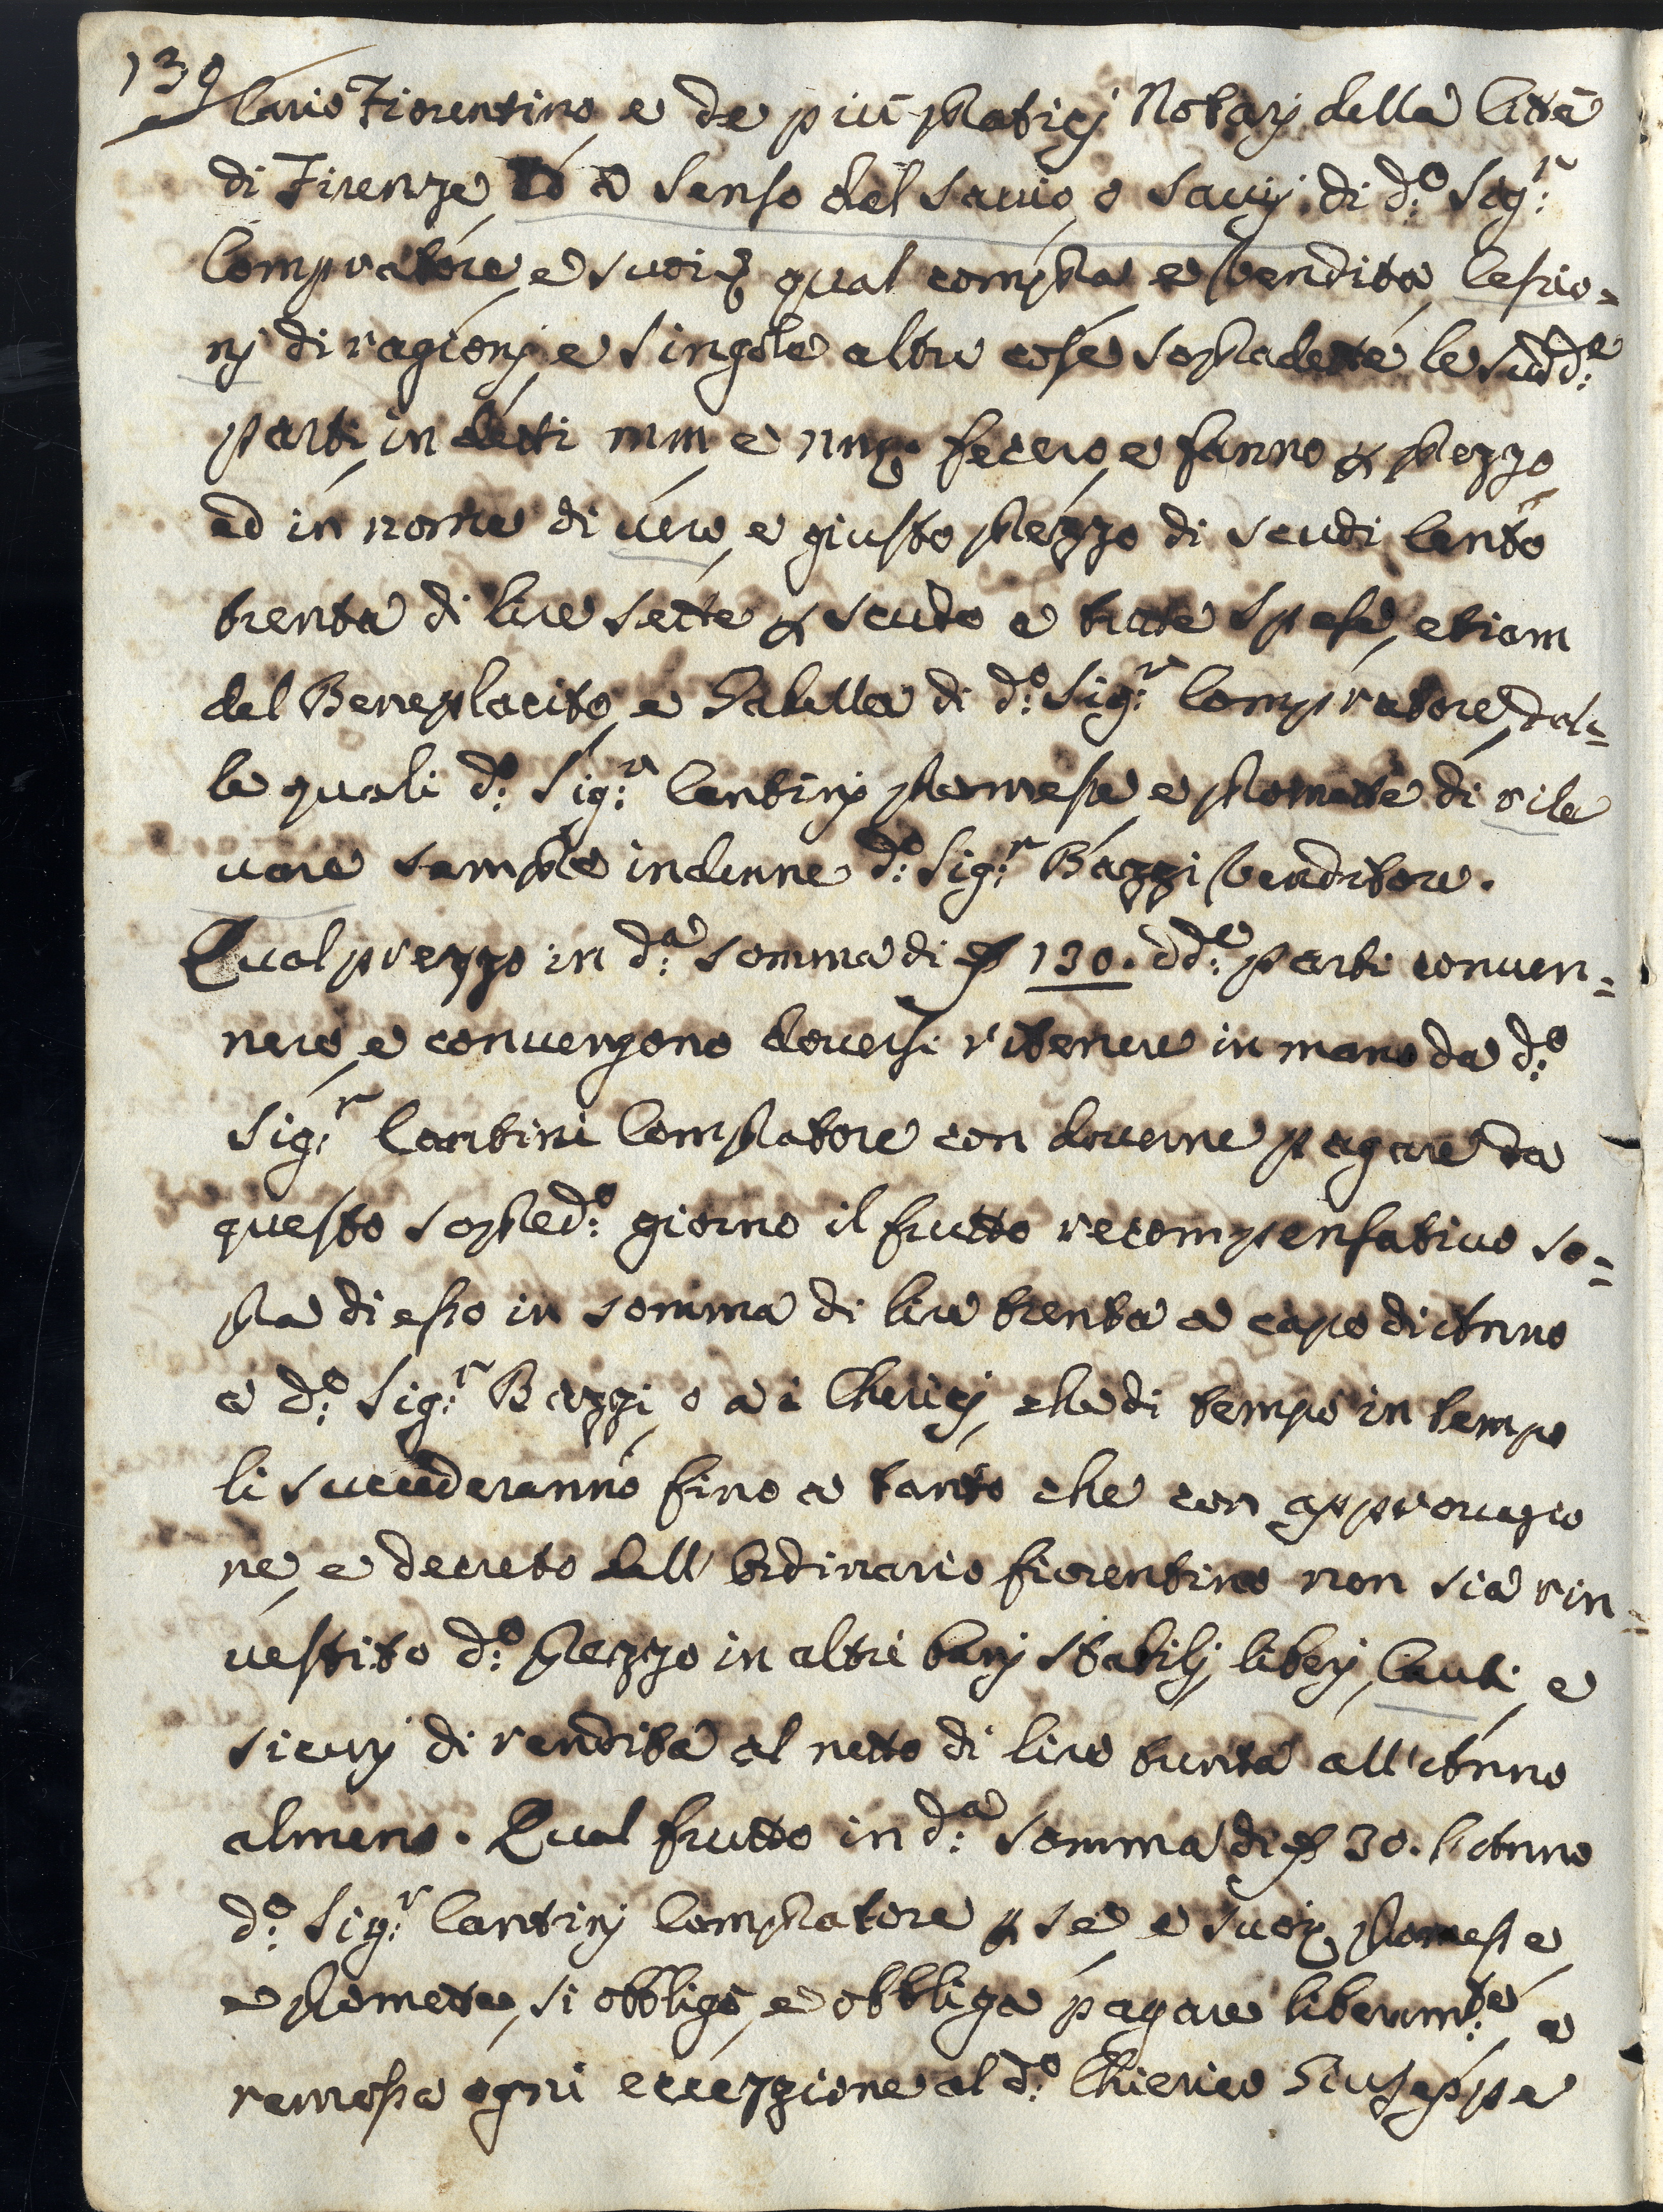 139
lario Fiorentino e de più pratici Notarj della Città
di Firenze, ed a senso del savio, o savij di d:º Sig:r
Compratore, e suoi, qual compra e vendita, Cessio=
nj di ragionj, e singole altre cose sopradette le sudd:e
parti in detti mm e nn fecero, e fanno p prezzo
ed in nome di vero, e giusto prezzo di scudi Cento
trenta di lire sette p scudo a tutte spese, etiam
del Beneplacito, e Gabella di d:º Sig:r Compratore, dal=
le quali d:º Sig:r Cantinj promesse e promette di rile
vare sempre indenne d:º Sig:r Bazzi Venditore.
Qual prezzo in d:a somma di 130. dd:e parti conven=
nero, e convengono doversi ritenere in mano da d:º
Sig:r Cantini Compratore con doverne pagare da
questo sopred:º giorno il frutto recompensativo so=
pra di esso in somma di lire trenta a capo di Anno
a d:º Sig:r Bazzi, o a i Chericj, che di tempo in tempo
li succederanno fino a tanto che con approvazio
ne, e decreto dell'Ordinario fiorentino non sia rin=
vestito d:º prezzo in altri benj stabilj, liberj, Cauti, e
sicurj di rendita al netto di lire trenta all'Anno
almeno. Qual frutto in d:a somma di 30. l'Anno
d:º Sig:r Cantinj Compratore p se e suoi promesse
e promette, si obbligò, e obbliga pagare liberam:te e
remossa ogni eccezzione al d:º Chierico Giuseppe